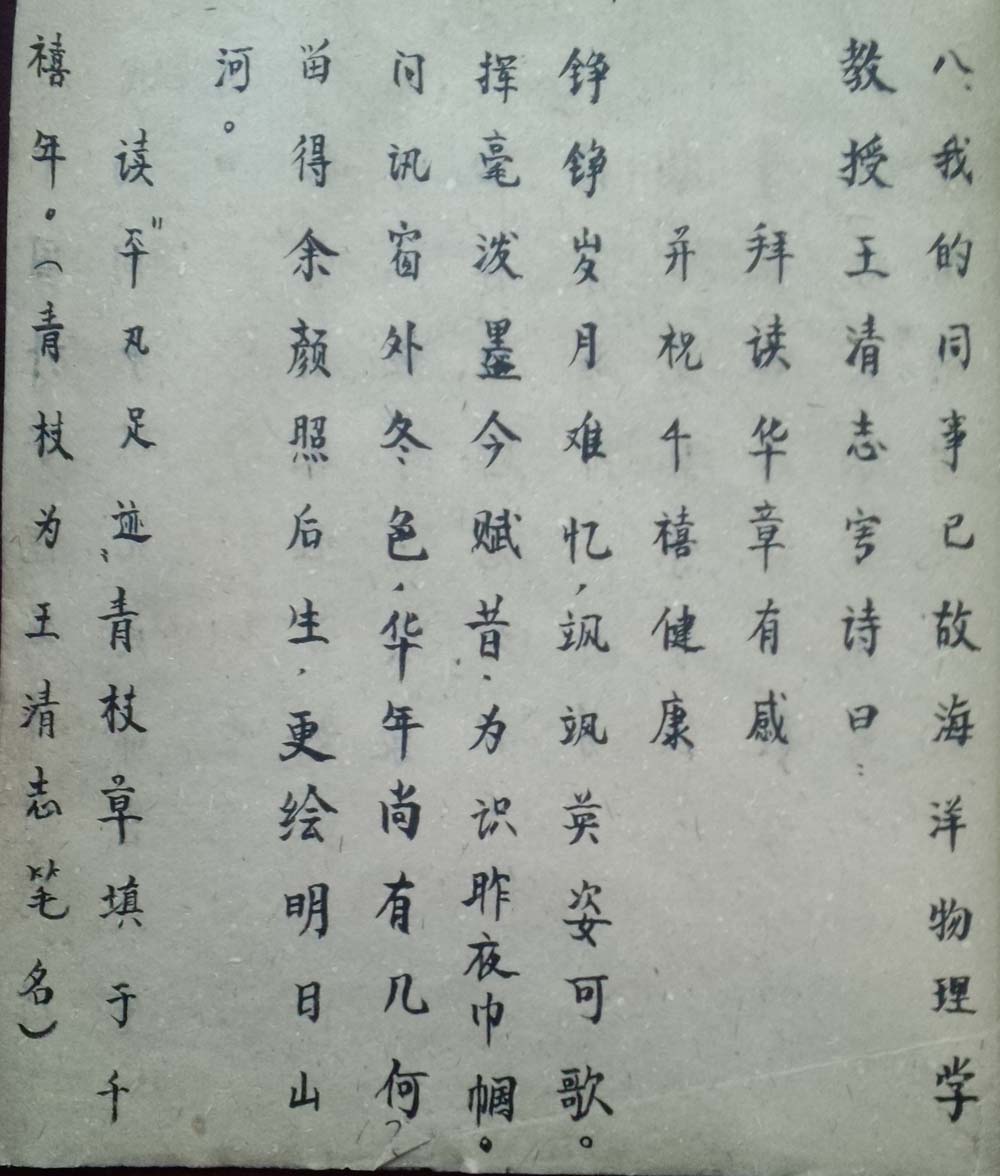 八、我的同事已故海洋物理学
教授王清志写诗曰：
拜读华章有感
并祝千禧健康
铮铮岁月难忆，飒飒英姿可歌。
挥毫泼墨今赋昔，为识昨夜巾帼。
问讯窗外冬色，华年尚有几何？
留得余颜照后生，更绘明日山
河。
读“平凡足迹”青枝草填于千
禧年。（青枝为王清志笔名）